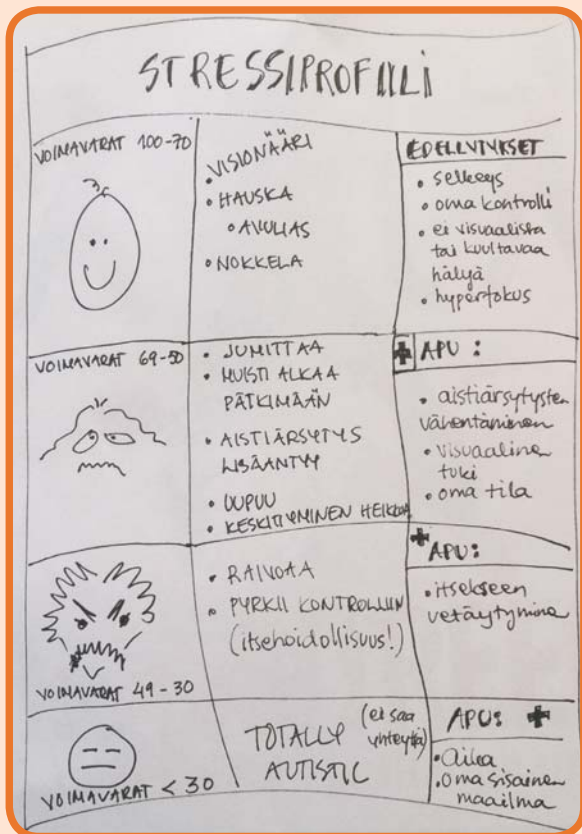 STRESSIPROFIILI
VOIMAVARAT 100-70
• VISIONÄÄRI
• HAUSKA
• AVULIAS
• NOKKELA
EDELLYTYKSET
• selkeys
• oma kontrolli
• ei visuaalista
tai kuultavaa
hälyä
• hyperfokus
VOIMAVARAT 69-50
• JUMITTAA
• MUISTI ALKAA
PÄTKIMÄÄN
• AISTIÄRSYTYS
LISÄÄNTYY
• UUPUU
• KESKITTYMINEN HEIKKOA
+ APU :
• aistiärsytysten
vähentäminen
• visuaalinen
tuki
• oma tila
VOIMAVARAT 49-30
• RAIVOAA
• PYRKII KONTROLLIIN
(itsehoidollisuus!)
+ APU:
• itsekseen
vetäytyminen
VOIMAVARAT < 30
TOTALLY (ei saa
AUTISTIC yhteyttä)
APU: +
• Aika
• oma sisäinen
maailma